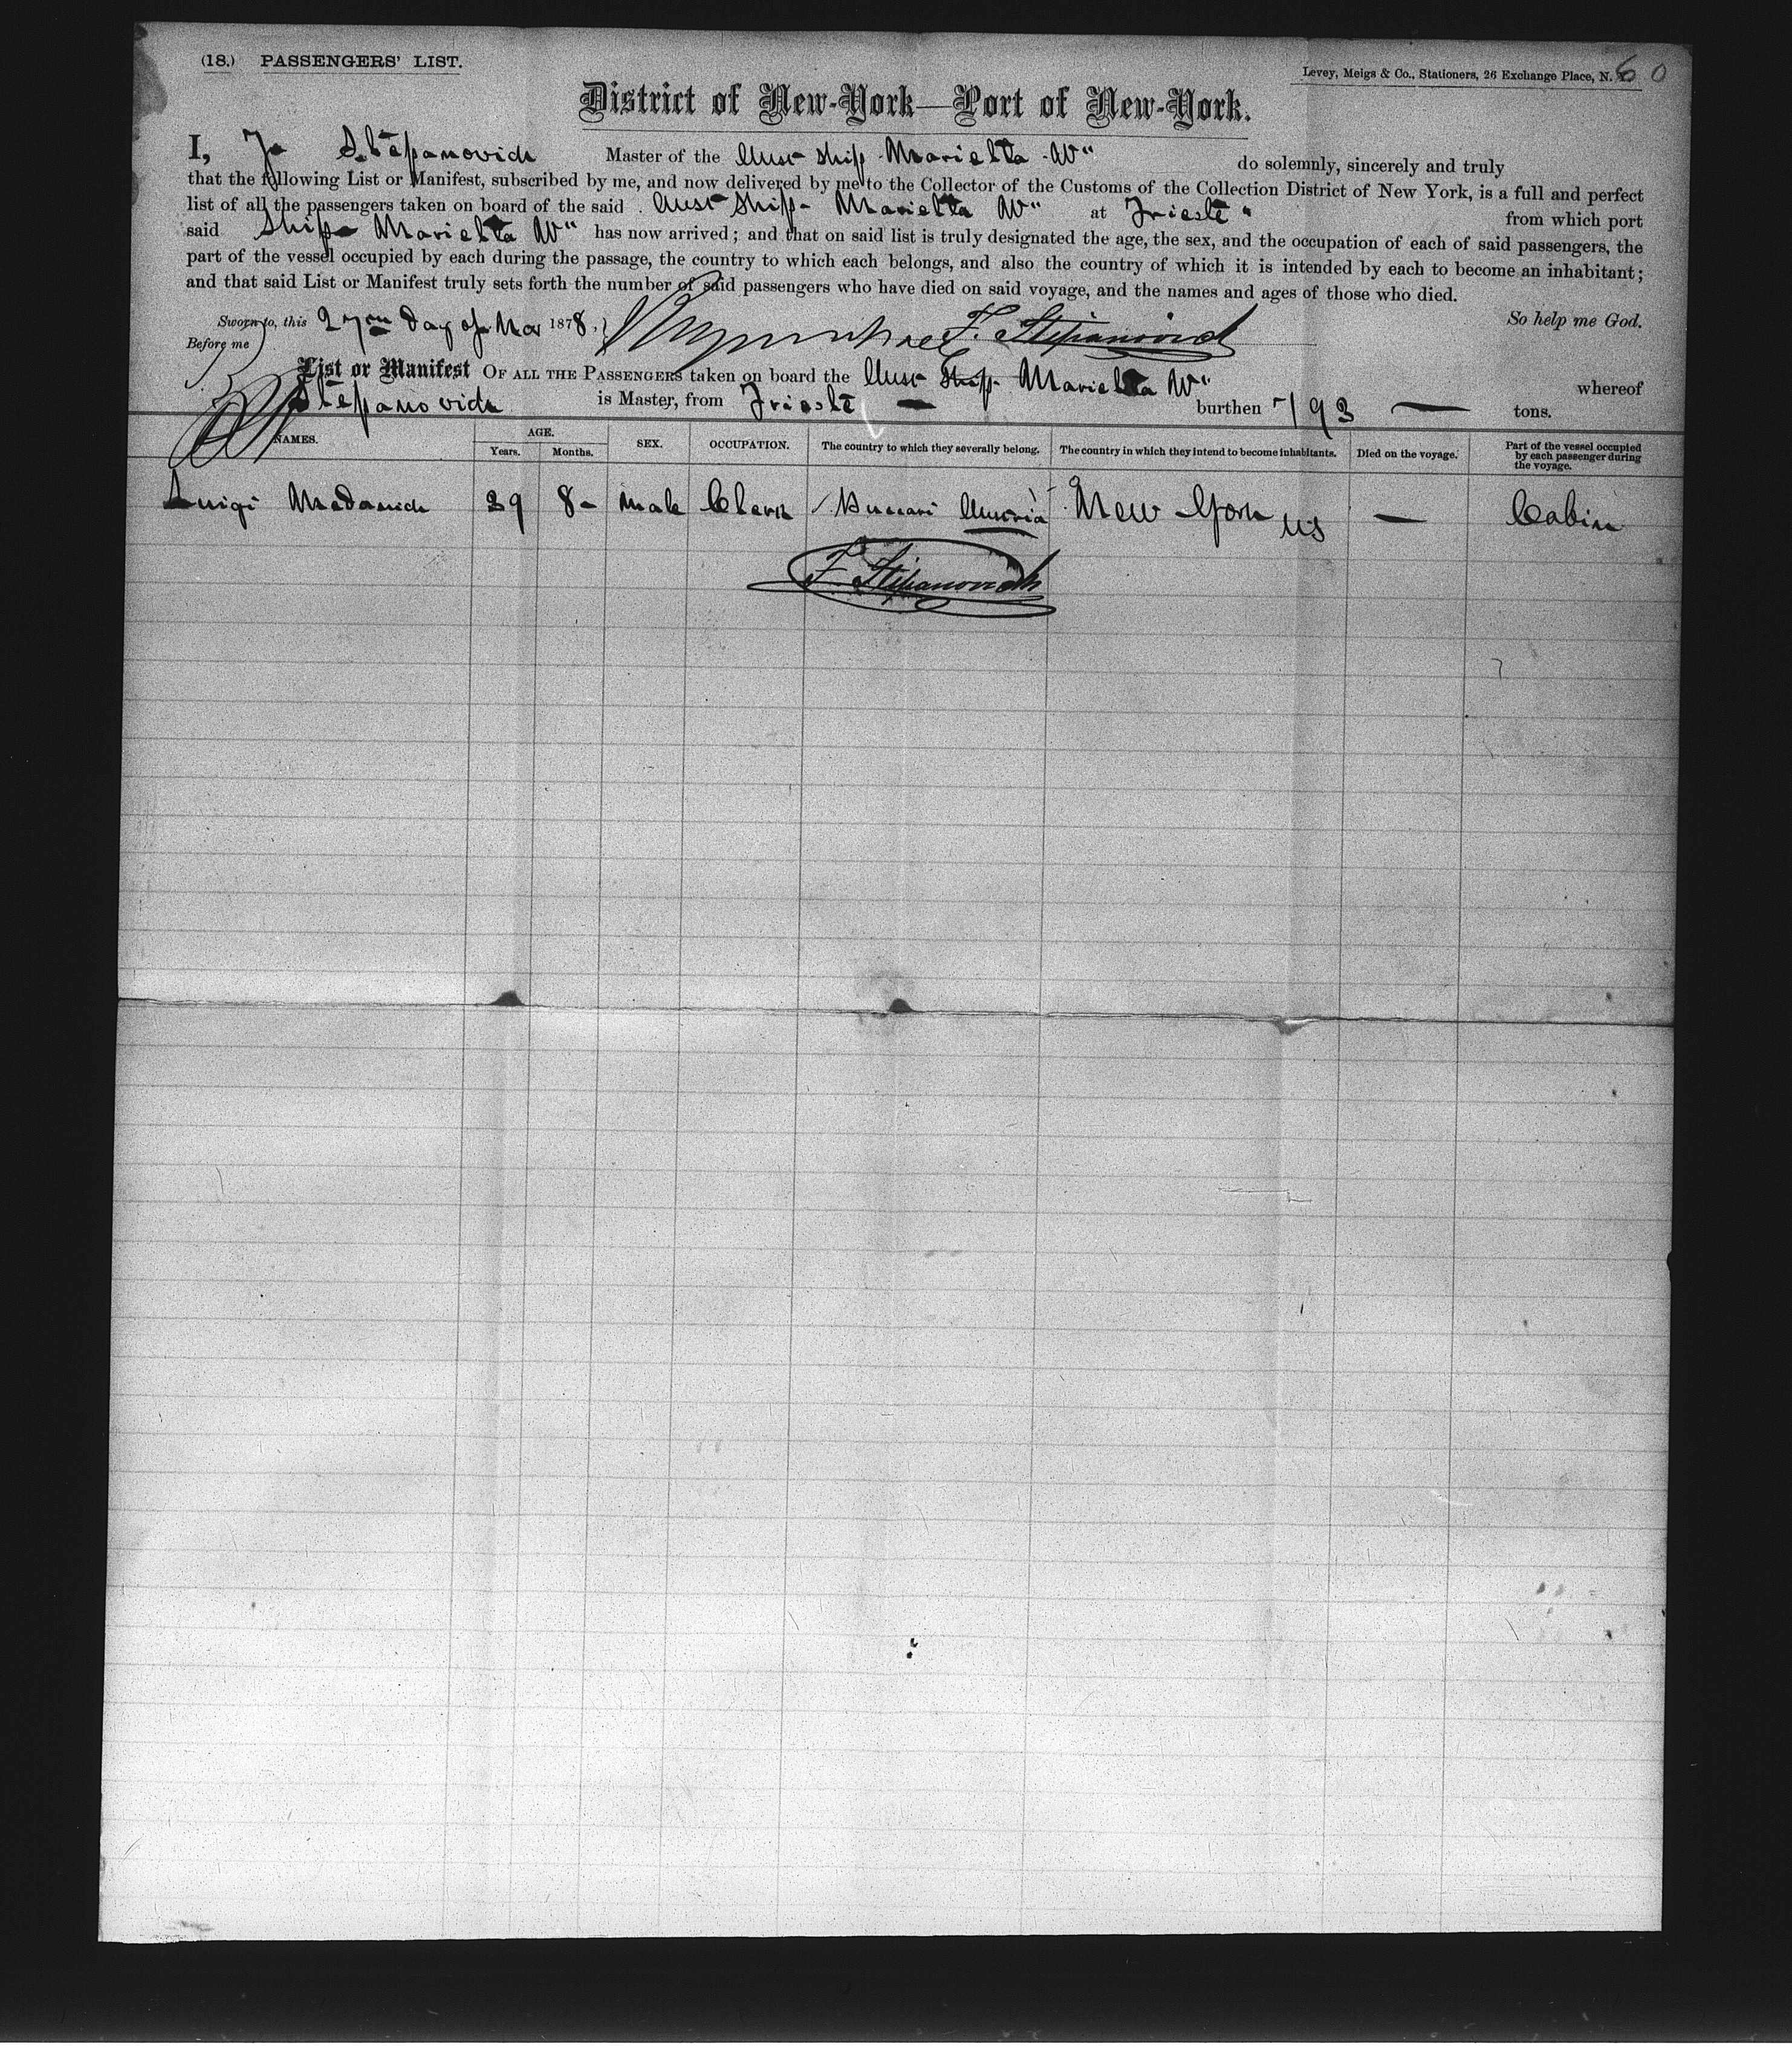 (18.) PASSENGERS' LIST.
Levey, Meigs & Co., Stationers, 26 Exchange Place, N. 60
District of New-York—Port of New-York.
I, F Stepanovich Master of the Aust Ship "Marietta W" do solemnly, sincerely and truly
that the following List or Manifest, subscribed by me, and now delivered by me to the Collector of the Customs of the Collection District of New York, is a full and perfect
list of all the passengers taken on board of the said Aust Ship- Marietta W" at Trieste " from which port
said Ship- Marietta W" has now arrived; and that on said list is truly designated the age, the sex, and the occupation of each of said passengers, the
part of the vessel occupied by each during the passage, the country to which each belongs, and also the country of which it is intended by each to become an inhabitant;
and that said List or Manifest truly sets forth the number of said passengers who have died on said voyage, and the names and ages of those who died.
So help me God.
Sworn to, this 27 Day of Mar 1878. F. Stipanovich
Before me
List or Manifest OF ALL THE PASSENGERS taken on board the Aust Ship- Marietta W" whereof
Stepanovich is Master, from Trieste — burthen 793 — tons.
NAMES. AGE. SEX. OCCUPATION. The country to which they severally belong. The country in which they intend to become inhabitants. Died on the voyage. Part of the vessel occupied by each passenger during the voyage.
Years. Months.
Luigi 39 8- Male Clerk Buccari Austria New York US — Cabin
F Stipanovich